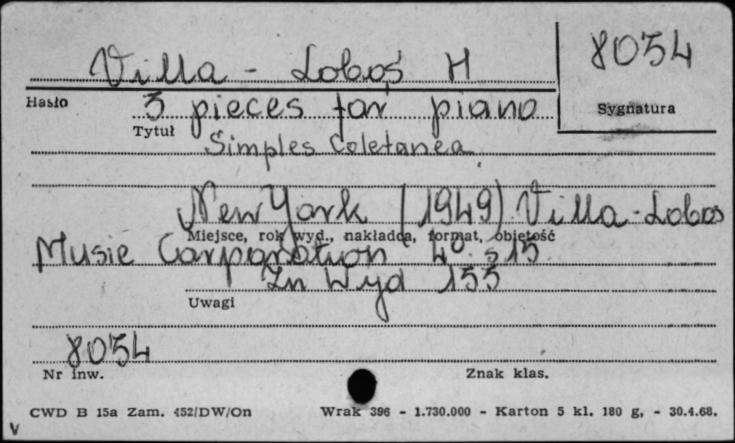 Villa - Loboś H
8054
Hasło
3 pieces for piano
Sygnatura
Tytuł
Simples Coletanea
New York (1949) Villa-Lobos
Miejsce, rok wyd., nakładca, format, objętość
Music Corporation 4° s 15
Zn Wyd 155
Uwagi
8054
Nr inw.
Znak klas.
CWD B 15a Zam. 452/DW/On Wrak 396 - 1.730.000 - Karton 5 kl. 180 g, - 30.4.68.
V